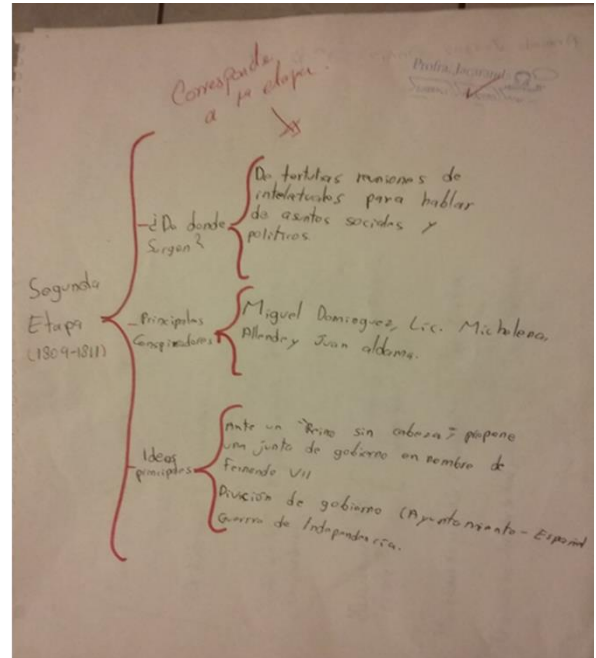 Corresponde
a 1a etapa.
Profra. Jacaranda
Segunda
Etapa
(1809-1811)
-¿De donde
Surgen?
De tertulias reuniones de
intelectuales para hablar
de asuntos sociales y
politicos.
-Principales
Conspiradores
Miguel Dominguez, Lic. Michelena,
Allende y Juan aldama.
-Ideas
principales
Ante un "Reino sin cabeza", propone
una junta de gobierno en nombre de
Fernando VII
División de gobierno (Ayuntamiento - Español
Guerra de Independencia.